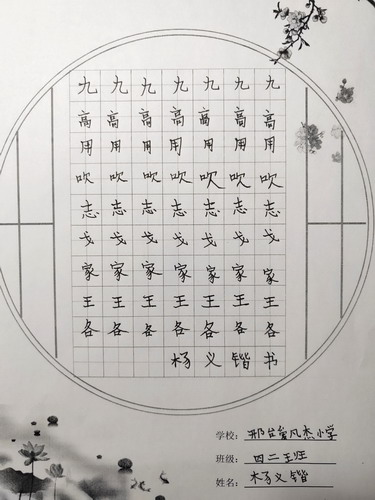 九九九九九九九
高高高高高高高
用用用用用用用
吹吹吹吹吹吹吹
志志志志志志志
戈戈戈戈戈戈戈
家家家家家家家
王王王王王王王
各各各各各各各
杨义锴书
学校：邢台凤杰小学
班级：四二班
姓名：杨义锴